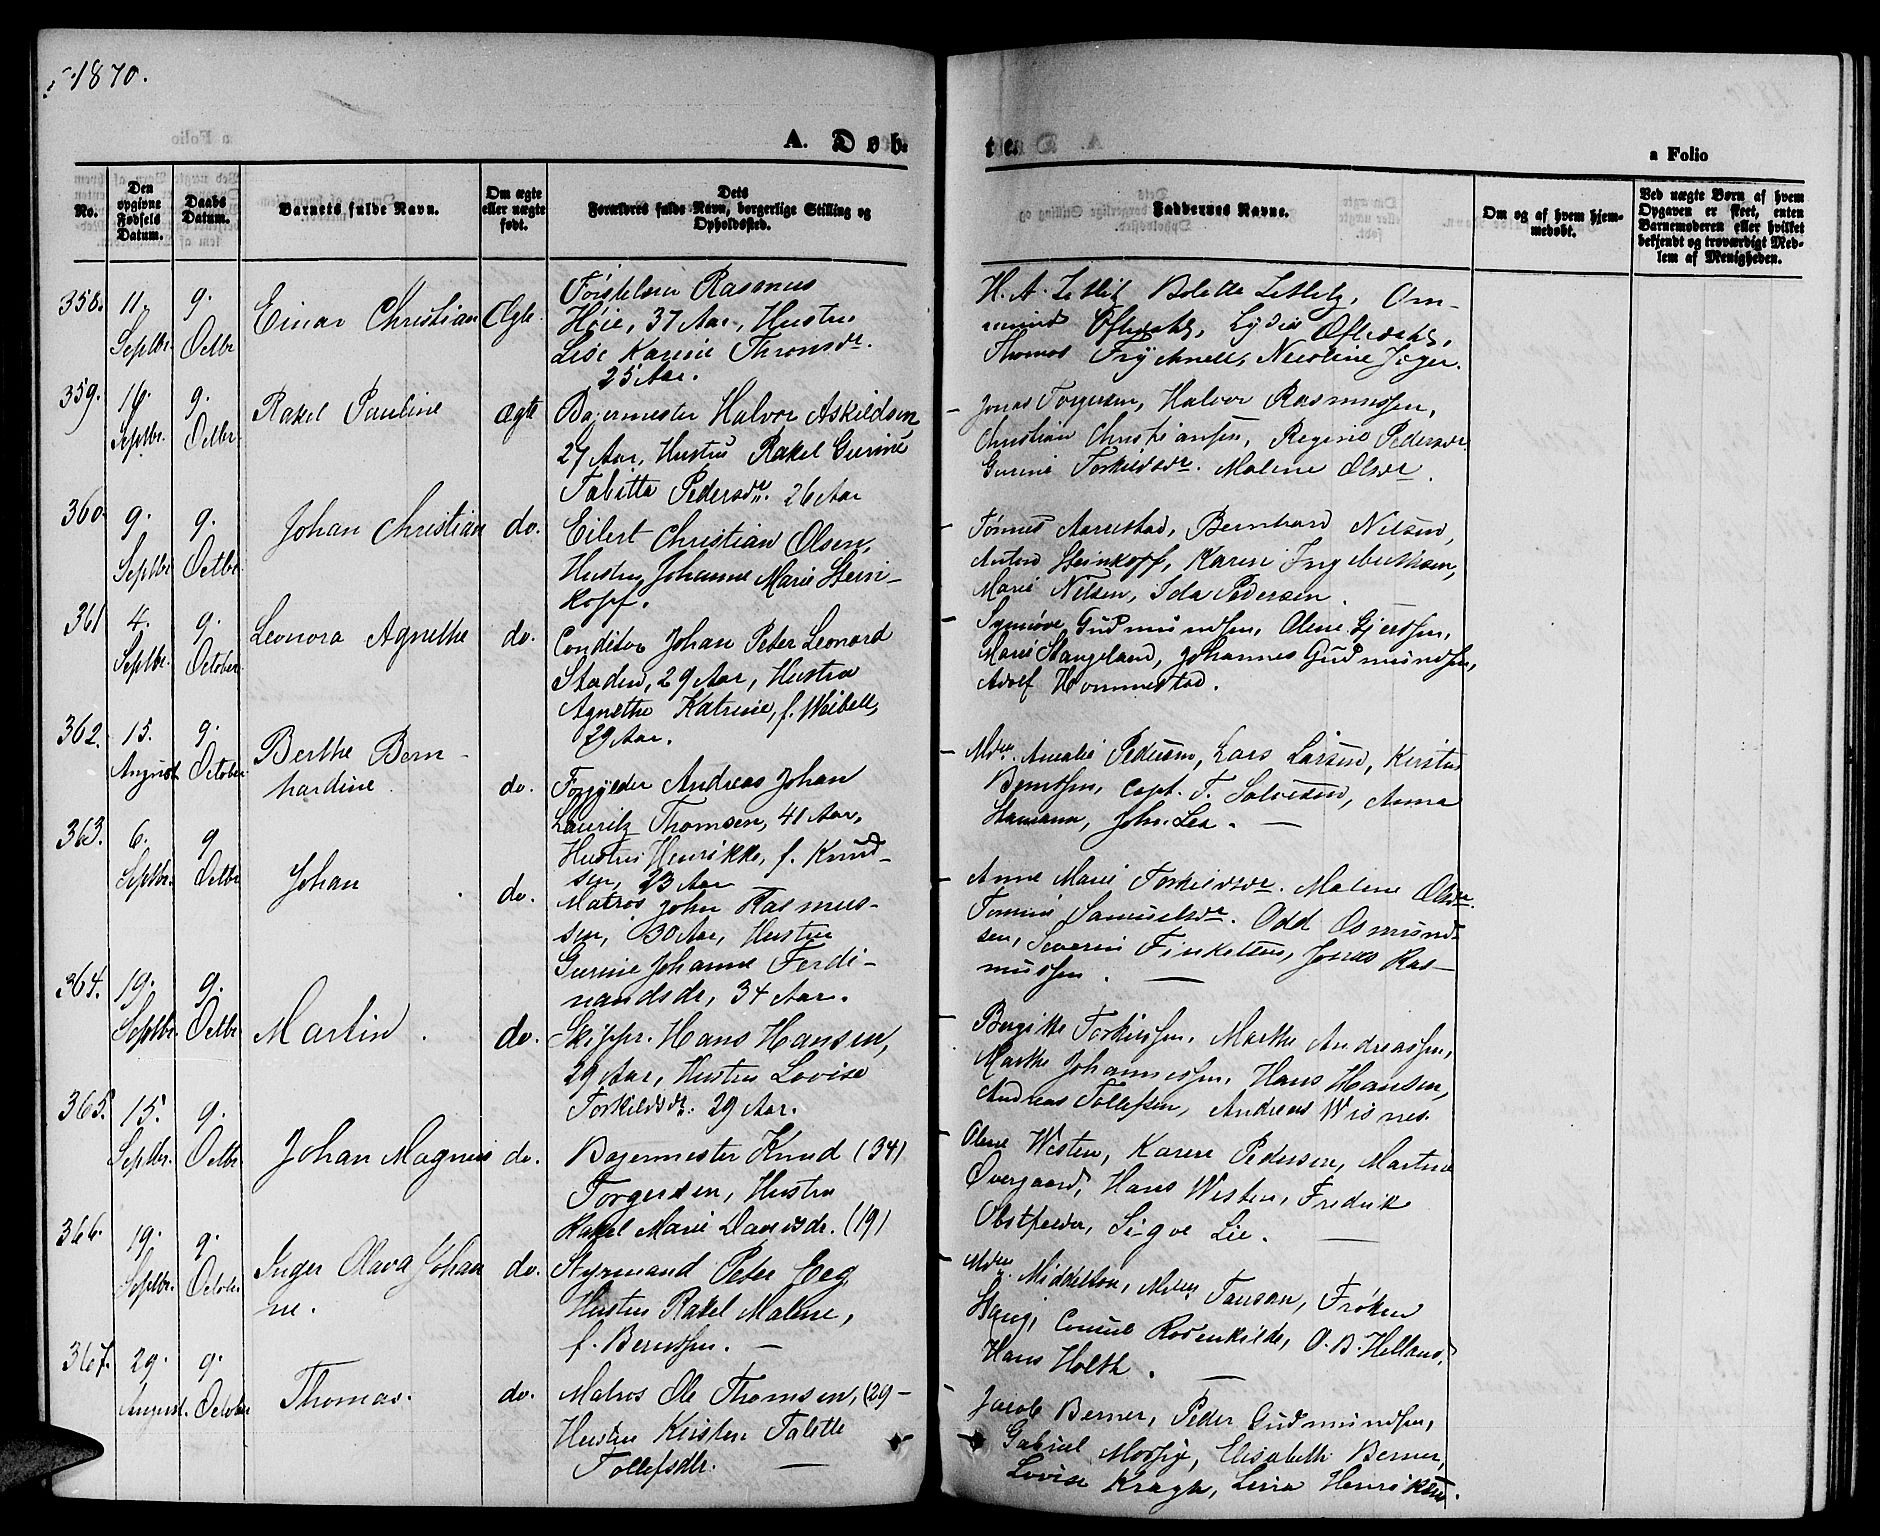 1870.
A. Døb-
te.
a Folio
No.
Den opgivne Fødsels Datum.
Daabs Datum.
Barnets fulde Navn.
Om ægte eller uægte født.
Dets Forældres fulde Navn, borgerlige Stilling og Opholdssted.
Faddernes Navne.
Om og af hvem hjemmedøbt.
Ved uægte Børn af hvem Opgaven er skeet, enten Barnemoderen eller hvilket bekjendt og troværdigt Medlem af Menigheden.
358. 11. Septbr. 9. Octbr. Einar Christian Ægte.
Rasmus
Høie, 37 Aar, Hustru
Lise Karine Thronsdr.
25 Aar.
H. A. Zetlitz, Bolette Zetlitz, Om-
mund Oftedahl, Lydia Oftedahl,
Thomas Frychnell, Nicoline Jeger.
359. 16. Septbr. 9. Octbr. Rakel Pauline Ægte
Bagermester Halvor Askildsen
27 Aar, Hustru Rakel Gurine
Tabitta Pedersdr. 26 Aar
Jonas Torgersen, Halvor Rasmussen,
Christian Christiansen, Regine Pedersdr
Gurine Torkildsdr. Malene Olsdr.
360. 9. Septbr. 9. Octbr. Johan Christian do.
Eilert Christian Olsen,
Hustru Johanne Marie Stein-
kopf.
Tønnes Aarrestad, Bernhard Nilsen,
Anton Steinkopf, Karen Ingebretsen,
Marie Nilsen, Ida Pedersen.
361 4. Septbr. 9. October Leonora Agnethe do.
Conditor Johan Peter Leonard
Staden, 29 Aar, Hustru
Agnethe Katrine, f. Weibell,
29 Aar.
Synnøve Gudmundsen, Olene Gjertsen,
Marie Stangeland, Johannes Gudmundsen,
Adolf Hommestad.
362. 15. August 9. October Berthe Bern-
hardine do.
Forgylder Andreas Johan
Lauritz Thomsen, 41 Aar,
Hustru Henrikke, f. Knud-
sen, 23 Aar
Mdm. Amalie Pedersen, Lars Larsen, Kirstine
Berntsen, Capt. T. Salvesen, Anna
Stamann, John Lea.
363. 6. Septbr. 9 Octbr Johan do.
Matros John Rasmus-
sen, 30 Aar, Hustru
Gurine Johanne Ferdi-
nandsdr, 34 Aar.
Anne Marie Torkildsdr. Malene Olsdr.
Tomine Samuelsdr. Odd Osmund-
sen, Severin Finkelsen, Jonas Ras-
mussen.
364. 19. Septbr. 9. Octbr Martin. do.
Skippr. Hans Hansen,
29 Aar, Hustru Lovise
Torkildsdr. 29 Aar.
Bergitte Torkildsen, Marthe Andreassen,
Marthe Johannessen, Hans Hansen,
Andreas Tollefsen, Andreas Wisnes.
365. 15. Septbr. 9. Octbr. Johan Magnus do.
Bagermester Knud (34)
Torgersen, Hustru
Rakel Marie Danielsdr. (19)
Olene Westen, Karen Pedersen, Martine
Overgaard, Hans Westen, Fredrik
Obstfelder, Sigve Lie.
366. 19. Septbr. 9. October Inger Olava Johan
ne. do.
Styrmand Peter Jeeg
Hustru Rakel Malene,
f. Berntsen.
Mdm. Middelton, Mdm. Tausan, Frøken
Consul Rosenkilde, O. B. Helland,
Hans Holth.
367. 29. August. 9. October Thomas. do.
Matros Ole Thomsen, (29-
Hustru Kirsten Tabitte
Tollefsdtr.
Jacob Berner, Peder Gudmundsen,
Gabriel Mossige, Elisabeth Berner,
Lovise Kragh, Lina Henriksen.